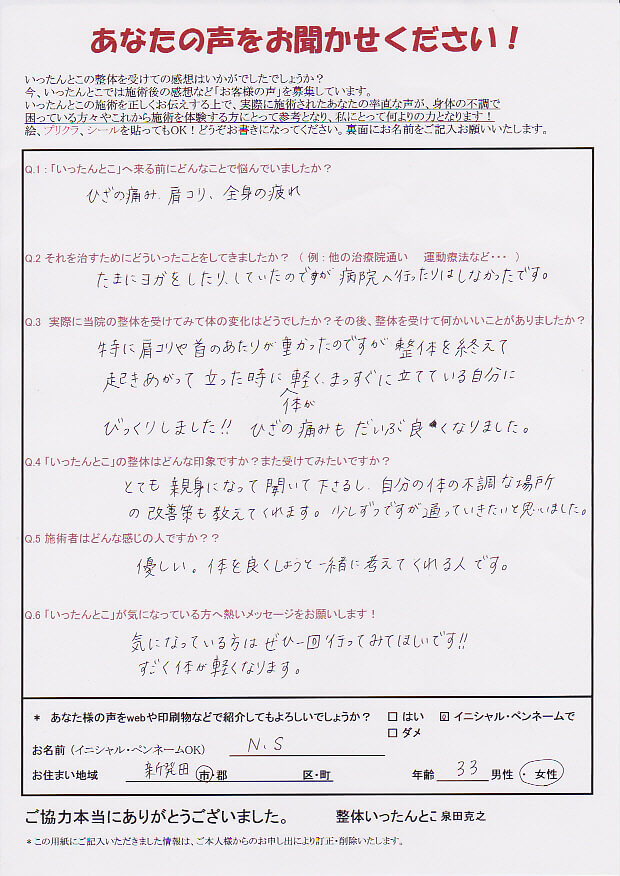 あなたの声をお聞かせください！
いったんとこの整体を受けての感想はいかがでしたでしょうか？
今、いったんとこでは施術後の感想など「お客様の声」を募集しています。
いったんとこの施術を正しくお伝えする上で、実際に施術されたあなたの率直な声が、身体の不調で
困っている方々やこれから施術を体験する方にとって参考となり、私にとって何よりの力となります！
絵、プリクラ、シールを貼ってもOK！どうぞお書きになってください。裏面にお名前をご記入お願いいたします。
Q.1：「いったんとこ」へ来る前にどんなことで悩んでいましたか？
ひざの痛み、肩コリ、全身の疲れ
Q.2 それを治すためにどういったことをしてきましたか？（例：他の治療院通い　運動療法など・・・）
たまにヨガをしたり、していたのですが 病院へ行ったりはしなかったです。
Q.3　実際に当院の整体を受けてみて体の変化はどうでしたか？その後、整体を受けて何かいいことがありましたか？
特に肩コリや首のあたりが重かったのですが 整体を終えて
起きあがって立った時に軽く、まっすぐに立てている自分に
体が
びっくりしました!! ひざの痛みも だいぶ良くなりました。
Q.4「いったんとこ」の整体はどんな印象ですか？また受けてみたいですか？
とても 親身になって 聞いて下さるし、自分の体の不調な場所
の改善策も教えてくれます。少しずつですが通っていきたいと思いました。
Q.5 施術者はどんな感じの人ですか？？
優しい。体を良くしようと一緒に考えてくれる人です。
Q.6「いったんとこ」が気になっている方へ熱いメッセージをお願いします！
気になっている方は ぜひ一回行ってみてほしいです!!
すごく体が軽くなります。
＊ あなた様の声をwebや印刷物などで紹介してもよろしいでしょうか？ □ はい ☑ イニシャル・ペンネームで
□ ダメ
お名前（イニシャル・ペンネームOK） N.S
お住まい地域 新発田 市・郡 区・町 年齢 33 男性・女性
ご協力本当にありがとうございました。 整体いったんとこ 泉田克之
＊この用紙にご記入いただきました情報は、ご本人様からのお申し出により訂正・削除いたします。